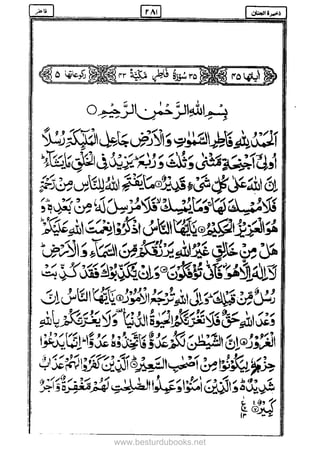 ذخیرة الجنان ٢٨١ فاطر
اٰیاتها ٤٥ ٣٥ سُوْرَةُ فَاطِرٍ مَكِّيَّةٌ ٤٣ رکوعاتها ٥
بِسْمِ اللّٰهِ الرَّحْمٰنِ الرَّحِيْمِ ○
اَلْحَمْدُ لِلّٰهِ فَاطِرِ السَّمٰوٰتِ وَالْاَرْضِ جَاعِلِ الْمَلٰٓئِكَةِ رُسُلًا
اُولِيْٓ اَجْنِحَةٍ مَّثْنٰى وَثُلٰثَ وَرُبٰعَ ؕ يَزِيْدُ فِي الْخَلْقِ مَا يَشَآءُ ؕ
اِنَّ اللّٰهَ عَلٰى كُلِّ شَيْءٍ قَدِيْرٌ ۝ مَا يَفْتَحِ اللّٰهُ لِلنَّاسِ مِنْ رَّحْمَةٍ
فَلَا مُمْسِكَ لَهَا ۚ وَمَا يُمْسِكْ ۙ فَلَا مُرْسِلَ لَهٗ مِنْۢ بَعْدِهٖ ؕ وَ
هُوَ الْعَزِيْزُ الْحَكِيْمُ ۝ يٰٓاَيُّهَا النَّاسُ اذْكُرُوْا نِعْمَتَ اللّٰهِ عَلَيْكُمْ ؕ
هَلْ مِنْ خَالِقٍ غَيْرُ اللّٰهِ يَرْزُقُكُمْ مِّنَ السَّمَآءِ وَالْاَرْضِ ؕ
لَآ اِلٰهَ اِلَّا هُوَ ۖ فَاَنّٰى تُؤْفَكُوْنَ ۝ وَاِنْ يُّكَذِّبُوْكَ فَقَدْ كُذِّبَتْ
رُسُلٌ مِّنْ قَبْلِكَ ؕ وَاِلَى اللّٰهِ تُرْجَعُ الْاُمُوْرُ ۝ يٰٓاَيُّهَا النَّاسُ اِنَّ
وَعْدَ اللّٰهِ حَقٌّ فَلَا تَغُرَّنَّكُمُ الْحَيٰوةُ الدُّنْيَا ۥ وَلَا يَغُرَّنَّكُمْ بِاللّٰهِ
الْغَرُوْرُ ۝ اِنَّ الشَّيْطٰنَ لَكُمْ عَدُوٌّ فَاتَّخِذُوْهُ عَدُوًّا ؕ اِنَّمَا يَدْعُوْا
حِزْبَهٗ لِيَكُوْنُوْا مِنْ اَصْحٰبِ السَّعِيْرِ ۝ اَلَّذِيْنَ كَفَرُوْا لَهُمْ عَذَابٌ
شَدِيْدٌ ؕ وَالَّذِيْنَ اٰمَنُوْا وَعَمِلُوا الصّٰلِحٰتِ لَهُمْ مَّغْفِرَةٌ وَّاَجْرٌ
كَبِيْرٌ ۝
www.besturdubooks.net